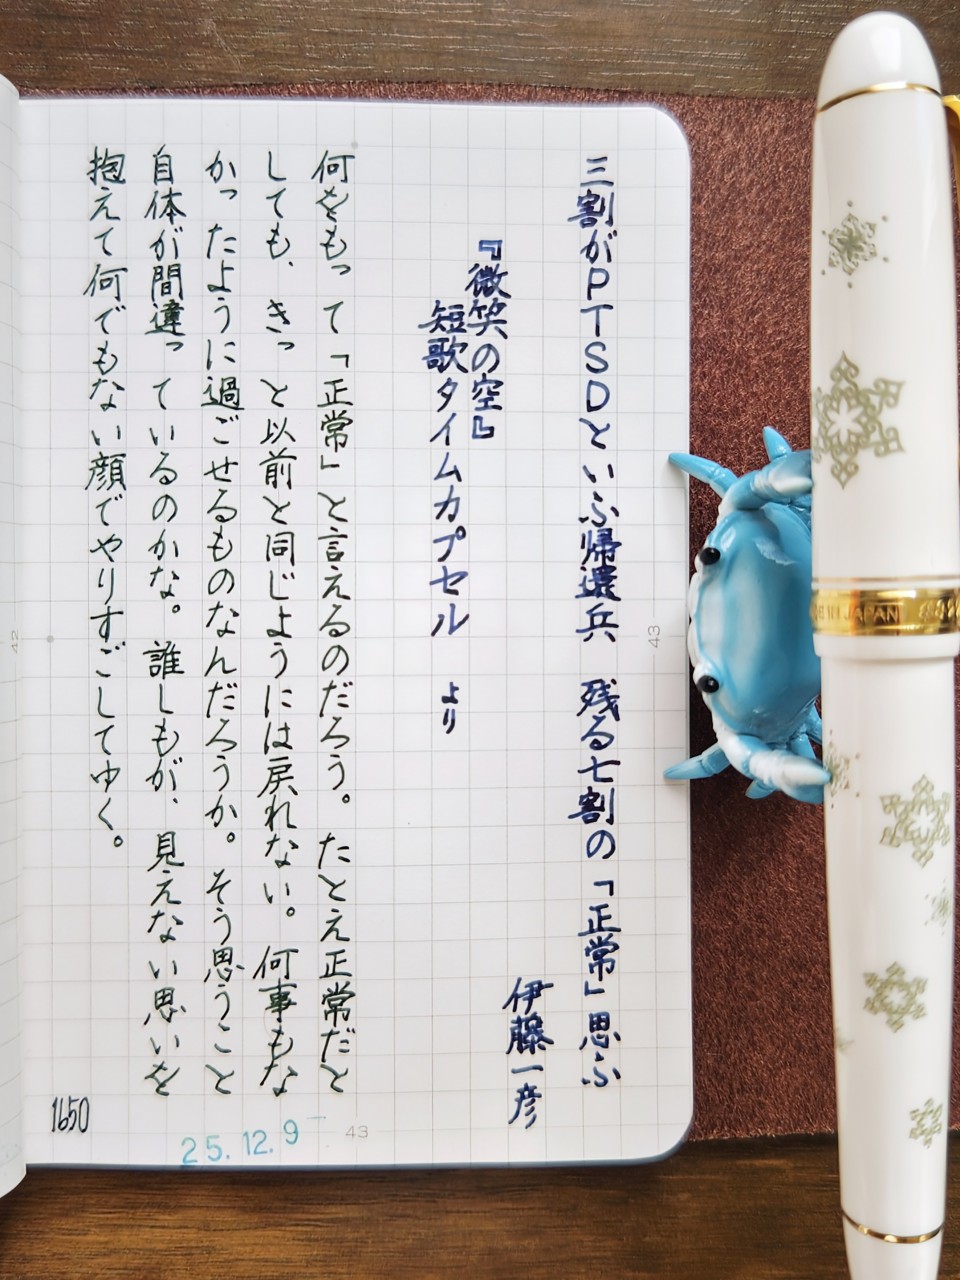 三割がPTSDといふ帰還兵　残る七割の「正常」思ふ
伊藤一彦
『微笑の空』
短歌タイムカプセル　より
何をもって「正常」と言えるのだろう。たとえ正常だと
しても、きっと以前と同じようには戻れない。何事もな
かったように過ごせるものなんだろうか。そう思うこと
自体が間違っているのかな。誰しもが、見えない思いを
抱えて何でもない顔でやりすごしてゆく。
1650
25.12.9
43
43
42
IN JAPAN